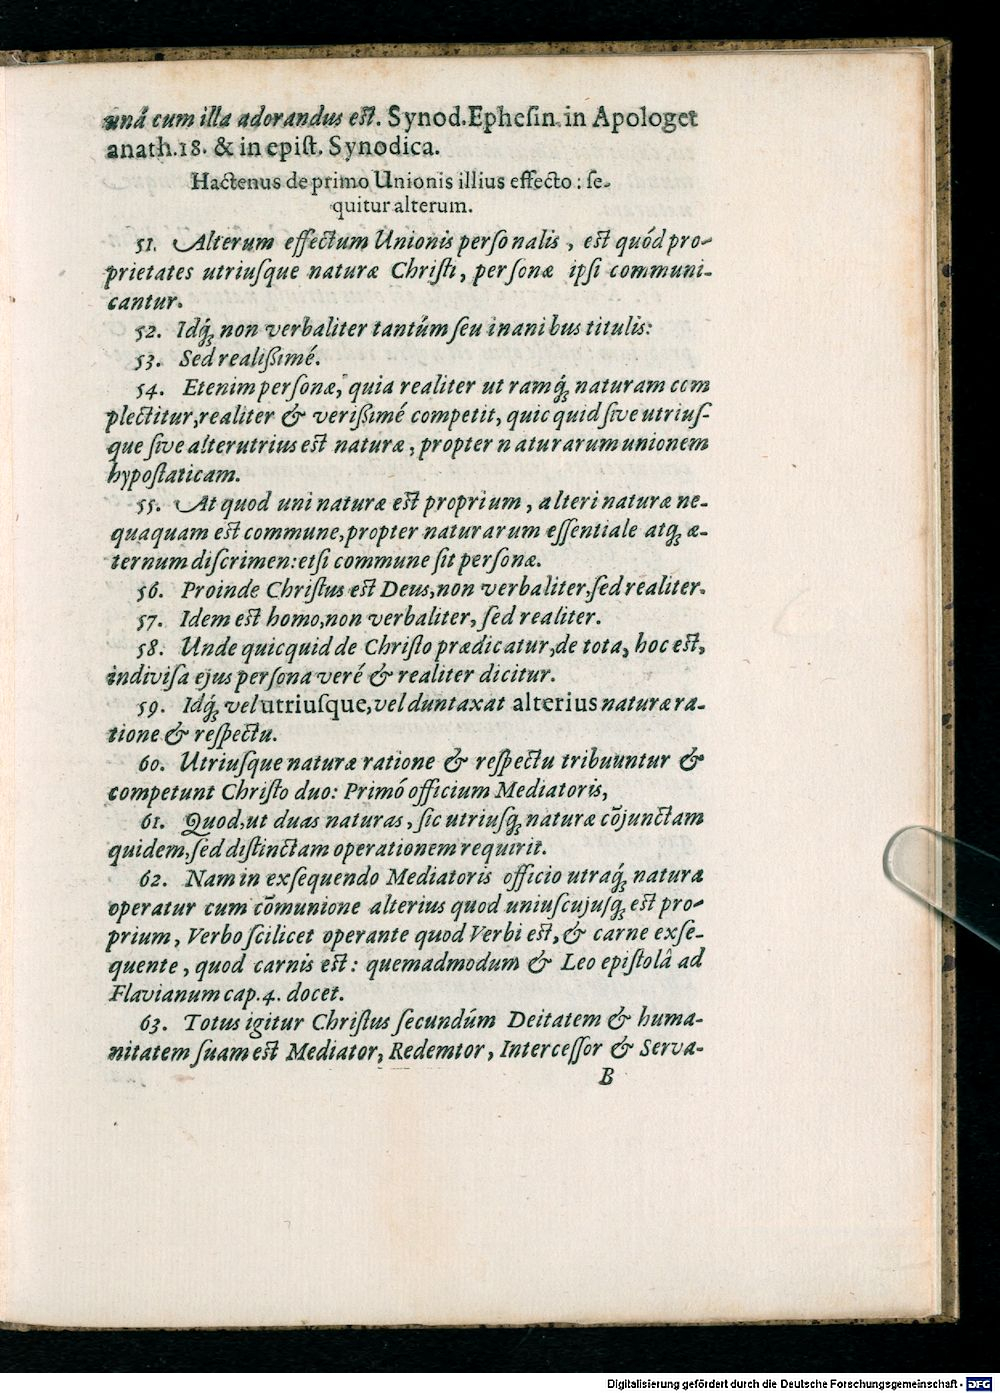 unâ cum illa adorandus est. Synod.Ephesin. in Apologet
anath.18. & in epist. Synodica.
Hactenus de primo Unionis illius effecto: se-
quitur alterum.
51. Alterum effectum Unionis personalis, est quód pro-
prietates utriusque naturæ Christi, personæ ipsi communi-
cantur.
52. Idq́; non verbaliter tantúm seu inanibus titulis:
53. Sed realißimé.
54. Etenim personæ, quia realiter utramq́; naturam com
plectitur, realiter & verißimé competit, quicquid sive utrius-
que sive alterutrius est naturæ, propter naturarum unionem
hypostaticam.
55. At quod uni naturæ est proprium, alteri naturæ ne-
quaquam est commune, propter naturarum essentiale atq; æ-
ternum discrimen: etsi commune sit personæ.
56. Proinde Christus est Deus, non verbaliter, sed realiter.
57. Idem est homo, non verbaliter, sed realiter.
58. Unde quicquid de Christo prædicatur, de tota, hoc est,
indivisa ejus persona veré & realiter dicitur.
59. Idq́; vel utriusque, vel duntaxat alterius naturæ ra-
tione & respectu.
60. Utriusque naturæ ratione & respectu tribuuntur &
competunt Christo duo: Primó officium Mediatoris,
61. Quod, ut duas naturas, sic utriusq; naturæ cõjunctam
quidem, sed distinctam operationem requirit.
62. Nam in exsequendo Mediatoris officio utraq́; natura
operatur cum cõmunione alterius quod uniuscujusq́; est pro-
prium, Verbo scilicet operante quod Verbi est, & carne exse-
quente, quod carnis est: quemadmodum & Leo epistolâ ad
Flavianum cap. 4. docet.
63. Totus igitur Christus secundúm Deitatem & huma-
nitatem suam est Mediator, Redemtor, Intercessor & Serva-
B
Digitalisierung gefördert durch die Deutsche Forschungsgemeinschaft - DFG